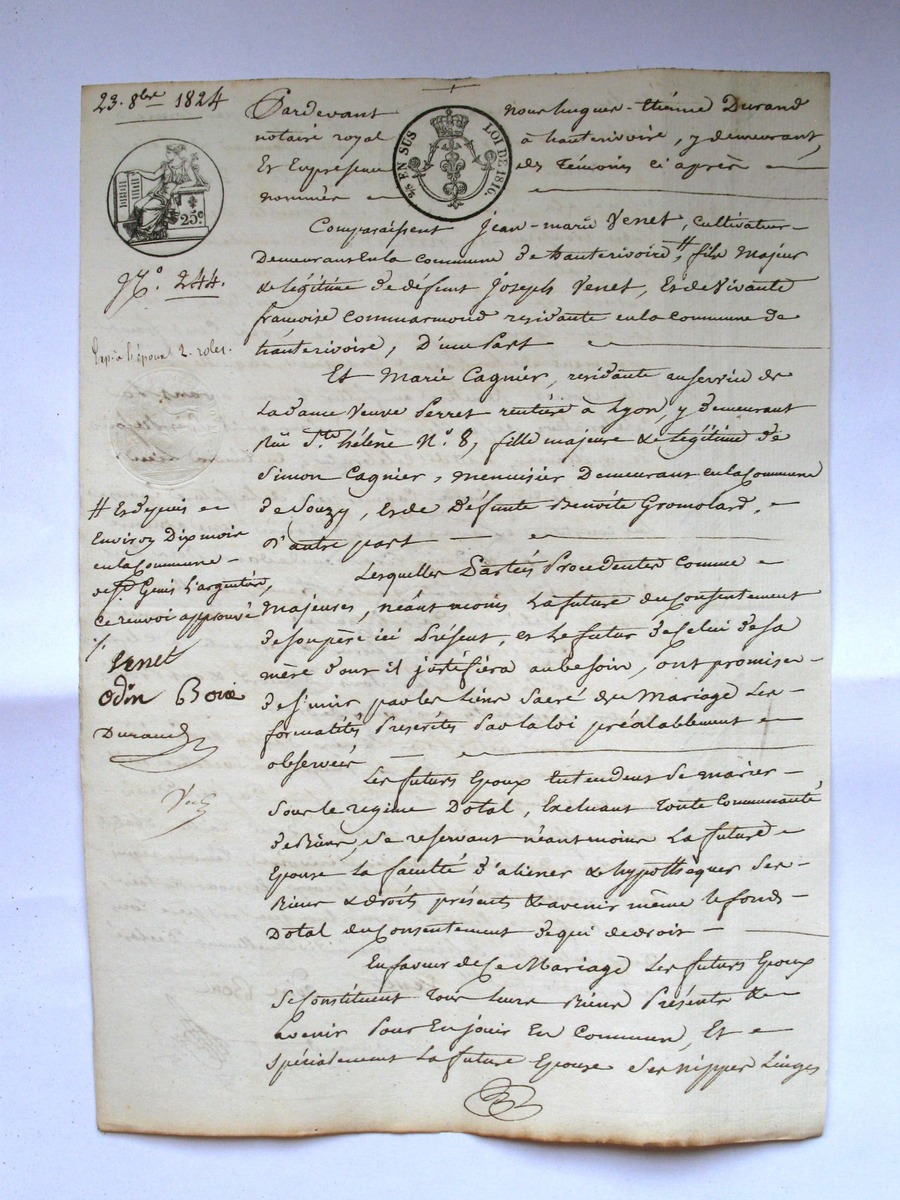 23. 8bre 1824
Pardevant nous hugues-étienne Durand
notaire royal à hauterivoire, y demeurant,
Et En présence des témoins ci après
nommés
2/5 EN SUS LOI DE 1816.
25c
N.° 244.
Comparaissent Jean-marie Venet, cultivateur
Demeurant En la commune de hauterivoire, # fils Majeur
& légitime de défunt Joseph Venet, Et de Vivante
françoise Commarmond residante en la commune de
hauterivoire, D'une Part
Exp. à l'époux 2. roles.
Et Marie Cagnier, residante au service de
La dame Veuve Perret rentière à Lyon, y demeurant
rue Ste. hélène N.° 8, fille majeure & légitime de
Simon Cagnier, menuisier Demeurant en la Commune
de Souzy, Et de Défunte Benoite Gromolard,
D'autre part
# Et depuis
Environ Dix mois
en la Commune
de St. Genis L'argentière,
ce renvoi approuvé
Venet
Odin Boie
Durand
Lesquelles Parties Procedentes Comme
Majeures, néantmoins La future du Consentement
de son père ici Présent, et Le futur de celui de sa
mère dont il justifiera au besoin, ont promis
de s'unir par les Liens Sacré du Mariage Les
formalités Prescrites Par la loi préalablement
observées
Les futurs Epoux Entendent Se marier
Sous le regime Dotal, Excluant Toute Communauté
de Biens, Se reservant néantmoins La future
Epouse la faculté d'aliener & hypothequer Ses
Biens & droits présents & avenir même le fond
Dotal du Consentement de qui de droit
En faveur de Ce Mariage Les futurs Epoux
Se Constituent Tous leurs Biens Présents &
avenir Pour En jouir En Commun, Et
Spécialement La future Epouse Ses nippes Linges